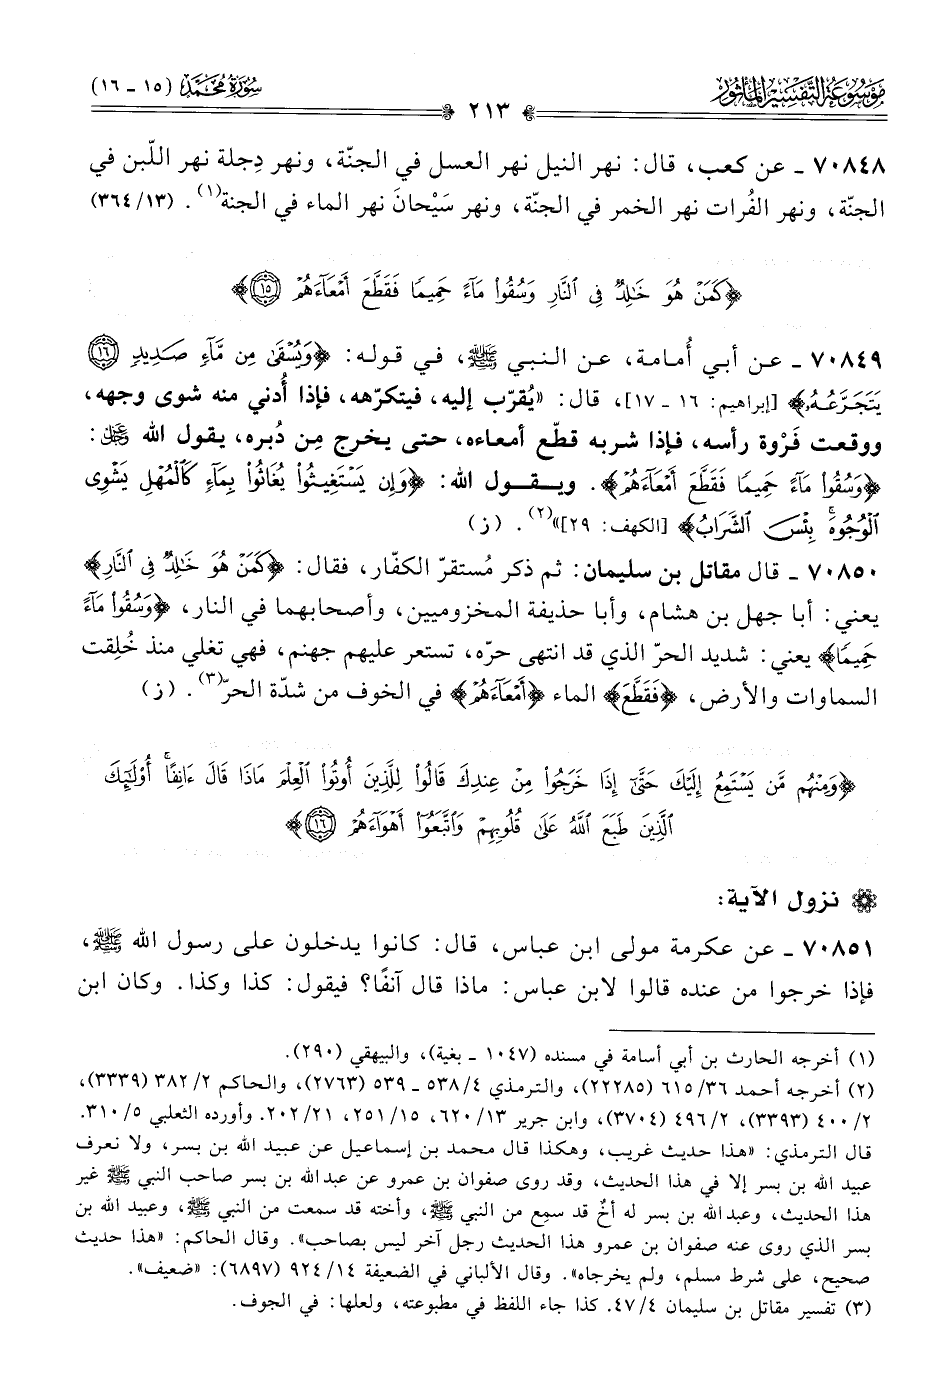 موسوعة التفسير المأثور
سورة محمد (١٥ - ١٦)
٢١٣
٧٠٨٤٨ - عن كعب، قال: نهر النيل نهر العسل في الجنّة، ونهر دِجلة نهر اللّبن في
الجنّة، ونهر الفُرات نهر الخمر في الجنّة، ونهر سَيْحانَ نهر الماء في الجنة(١). (٣٦٤/١٣)
﴿كَمَنْ هُوَ خَٰلِدٌ فِى ٱلنَّارِ وَسُقُوا۟ مَآءً حَمِيمًا فَقَطَّعَ أَمْعَآءَهُمْ ١٥﴾
٧٠٨٤٩ - عن أبي أُمامة، عن النبي ﷺ، في قوله: ﴿وَيُسْقَىٰ مِن مَّآءٍ صَدِيدٍ ١٦
يَتَجَرَّعُهُۥ﴾ [إبراهيم: ١٦ - ١٧]، قال: «يُقرّب إليه، فيتكرّهه، فإذا أُدني منه شوى وجهه،
ووقعت فَرْوة رأسه، فإذا شربه قطّع أمعاءه، حتى يخرج مِن دُبره، يقول الله ﷿:
﴿وَسُقُوا۟ مَآءً حَمِيمًا فَقَطَّعَ أَمْعَآءَهُمْ﴾. ويقول الله: ﴿وَإِن يَسْتَغِيثُوا۟ يُغَاثُوا۟ بِمَآءٍ كَٱلْمُهْلِ يَشْوِى
ٱلْوُجُوهَ ۚ بِئْسَ ٱلشَّرَابُ﴾ [الكهف: ٢٩]»(٢). (ز)
٧٠٨٥٠ - قال مقاتل بن سليمان: ثم ذكر مُستقرّ الكفّار، فقال: ﴿كَمَنْ هُوَ خَٰلِدٌ فِى ٱلنَّارِ﴾
يعني: أبا جهل بن هشام، وأبا حذيفة المخزوميين، وأصحابهما في النار، ﴿وَسُقُوا۟ مَآءً
حَمِيمًا﴾ يعني: شديد الحرّ الذي قد انتهى حرّه، تستعر عليهم جهنم، فهي تغلي منذ خُلِقت
السماوات والأرض، ﴿فَقَطَّعَ﴾ الماء ﴿أَمْعَآءَهُمْ﴾ في الخوف من شدّة الحرّ(٣). (ز)
﴿وَمِنْهُم مَّن يَسْتَمِعُ إِلَيْكَ حَتَّىٰٓ إِذَا خَرَجُوا۟ مِنْ عِندِكَ قَالُوا۟ لِلَّذِينَ أُوتُوا۟ ٱلْعِلْمَ مَاذَا قَالَ ءَانِفًا ۚ أُو۟لَٰٓئِكَ
ٱلَّذِينَ طَبَعَ ٱللَّهُ عَلَىٰ قُلُوبِهِمْ وَٱتَّبَعُوٓا۟ أَهْوَآءَهُمْ ١٦﴾
نزول الآية:
٧٠٨٥١ - عن عكرمة مولى ابن عباس، قال: كانوا يدخلون على رسول الله ﷺ،
فإذا خرجوا من عنده قالوا لابن عباس: ماذا قال آنفًا؟ فيقول: كذا وكذا. وكان ابن
(١) أخرجه الحارث بن أبي أسامة في مسنده (١٠٤٧ - بغية)، والبيهقي (٢٩٠).
(٢) أخرجه أحمد ٣٦/ ٦١٥ (٢٢٢٨٥)، والترمذي ٤/ ٥٣٨ - ٥٣٩ (٢٧٦٣)، والحاكم ٢/ ٣٨٢ (٣٣٣٩)،
٢/ ٤٠٠ (٣٣٩٣)، ٢/ ٤٩٦ (٣٧٠٤)، وابن جرير ١٣/ ٦٢٠، ١٥/ ٢٥١، ٢١/ ٢٠٢. وأورده الثعلبي ٥/ ٣١٠.
قال الترمذي: «هذا حديث غريب، وهكذا قال محمد بن إسماعيل عن عبيد الله بن بسر، ولا نعرف
عبيد الله بن بسر إلا في هذا الحديث، وقد روى صفوان بن عمرو عن عبدالله بن بسر صاحب النبي ﷺ غير
هذا الحديث، وعبدالله بن بسر له أخٌ قد سمِع من النبي ﷺ، وأخته قد سمعت من النبي ﷺ، وعبيد الله بن
بسر الذي روى عنه صفوان بن عمرو هذا الحديث رجل آخر ليس بصاحب». وقال الحاكم: «هذا حديث
صحيح، على شرط مسلم، ولم يخرجاه». وقال الألباني في الضعيفة ١٤/ ٩٢٤ (٦٨٩٧): «ضعيف».
(٣) تفسير مقاتل بن سليمان ٤/ ٤٧. كذا جاء اللفظ في مطبوعته، ولعلها: في الجوف.